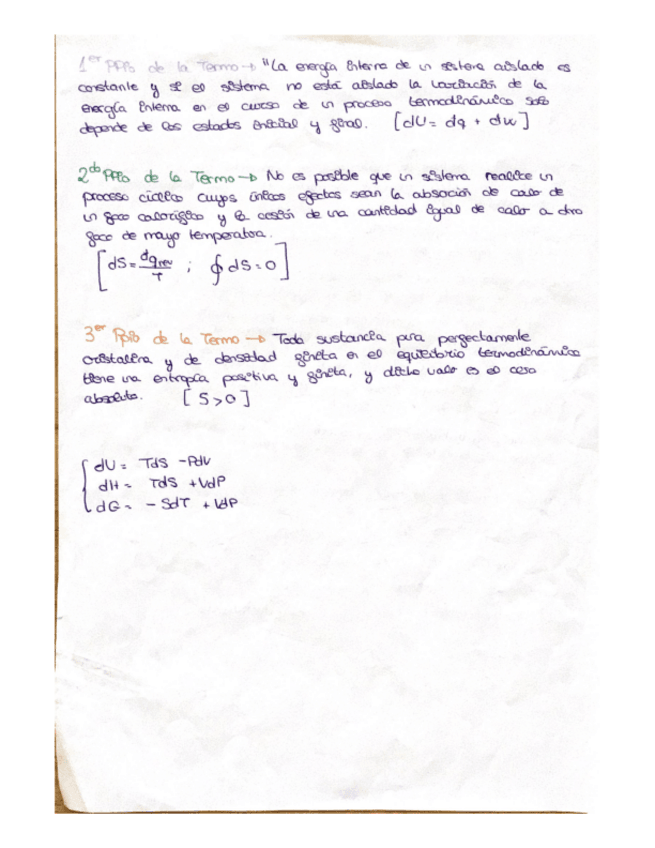 1er Ppio de la Termo → "La energía interna de un sistema aislado es
constante y si el sistema no está aislado la variación de la
energía interna en el curso de un proceso termodinámico solo
depende de los estados inicial y final. [dU = dq + dw]
2do PPio de la Termo → No es posible que un sistema realice un
proceso cíclico cuyos únicos efectos sean la absorción de calor de
un foco calorífico y la cesión de una cantidad igual de calor a otro
foco de mayor temperatura.
[dS = dqrev/T ; ∮ dS = 0]
3er Ppio de la Termo → Toda sustancia pura perfectamente
cristalina y de densidad finita en el equilibrio termodinámico
tiene una entropía positiva y finita, y dicho valor es el cero
absoluto. [S > 0]
dU = TdS - PdV
dH = TdS + VdP
dG = - SdT + VdP